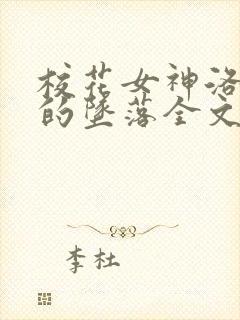 校花女神洛
的墜落全文
李杜